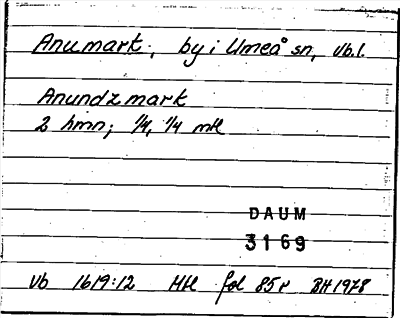 Anumark, by i Umeå sn, Vb.l.
Anundzmark
2 hmn; 1/4, 1/4 mtl
DAUM
3169
Vb 1619:12 Mtl fol 85r BH 1978